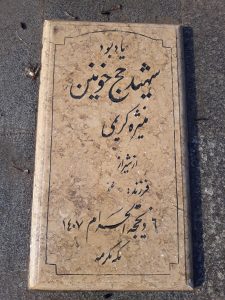 یادبود
شهید حج خونین
منیژه کریمی
از شیراز
فرزند:
۶ ذیحجه الحرام ۱۴۰۷
مکه مکرمه